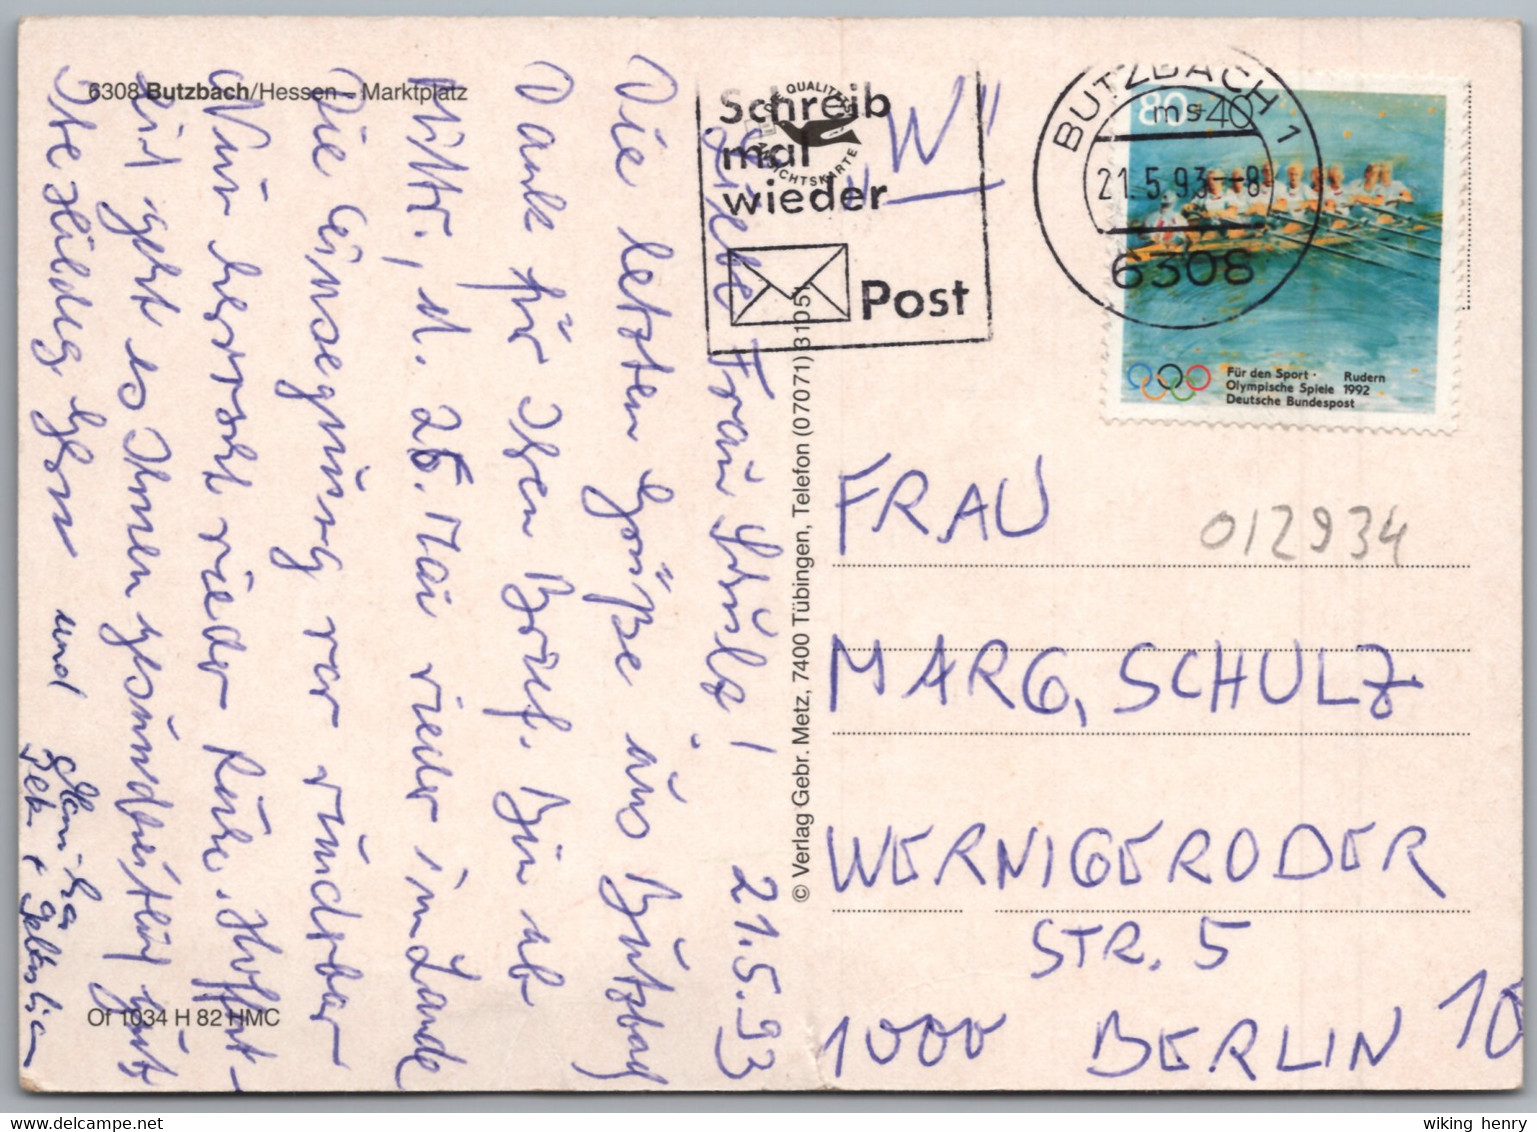 6308 Butzbach/Hessen – Marktplatz
Liebe Frau Schulz! 21.5.93
Die letzten Grüße aus Butzbach
Dank für Ihren Brief. Bin ab
Mittw., d. 26. Mai wieder im Lande
Die Einsegnung war wunderbar
Nun herrscht wieder Ruhe. Hoffent-
lich geht es Ihnen gesundheitlich gut
Ihre Hildeg
und
Of 1034 H 82 HMC
© Verlag Gebr. Metz, 7400 Tübingen, Telefon (07071) 31051
QUALITÄTS
ANSICHTSKARTE
"W"
Schreib
mal
wieder
Post
BUTZBACH 1
ms 40
21.5.93-8
6308
80
Für den Sport · Rudern
Olympische Spiele 1992
Deutsche Bundespost
FRAU
012934
MARG. SCHULZ
WERNIGERODER
STR. 5
1000 BERLIN 10
wiking henry